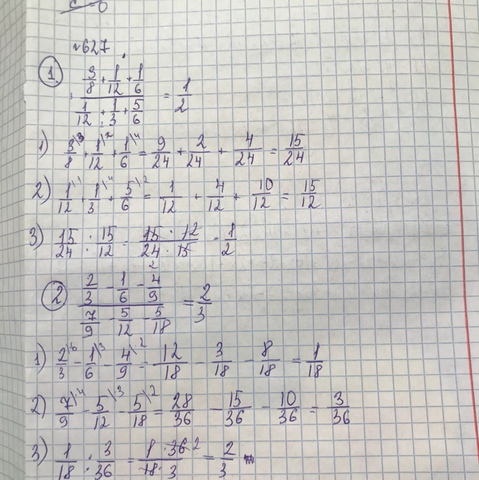 №627
① (3/8 + 1/12 + 1/6) / (1/12 + 1/3 + 5/6) = 1/2
1) 3/8 \3 + 1/12 \2 + 1/6 \4 = 9/24 + 2/24 + 4/24 = 15/24
2) 1/12 \1 + 1/3 \4 + 5/6 \2 = 1/12 + 4/12 + 10/12 = 15/12
3) 15/24 : 15/12 = 15 · 12 / 24 · 15 = 1/2
② (2/3 - 1/6 - 4/9) / (7/9 - 5/12 - 5/18) = 2/3
1) 2/3 \6 - 1/6 \3 - 4/9 \2 = 12/18 - 3/18 - 8/18 = 1/18
2) 7/9 \4 - 5/12 \3 - 5/18 \2 = 28/36 - 15/36 - 10/36 = 3/36
3) 1/18 : 3/36 = 1 · 36 2 / 18 · 3 = 2/3